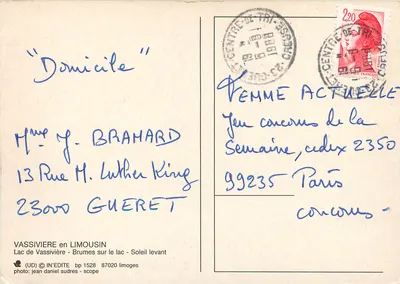 "Domicile"
Mme J. BRAMARD
13 Rue M. Luther King
23000 GUERET
VASSIVIERE en LIMOUSIN
Lac de Vassivière - Brumes sur le lac - Soleil levant
(UD) © IN'EDITE bp 1528 87020 limoges
photo: jean daniel sudres - scope
CENTRE DE TRI
23 CREUSE
2,20
FEMME ACTUELLE
Jeu concours de la
Semaine, cedex 2350
99235 Paris
concours-